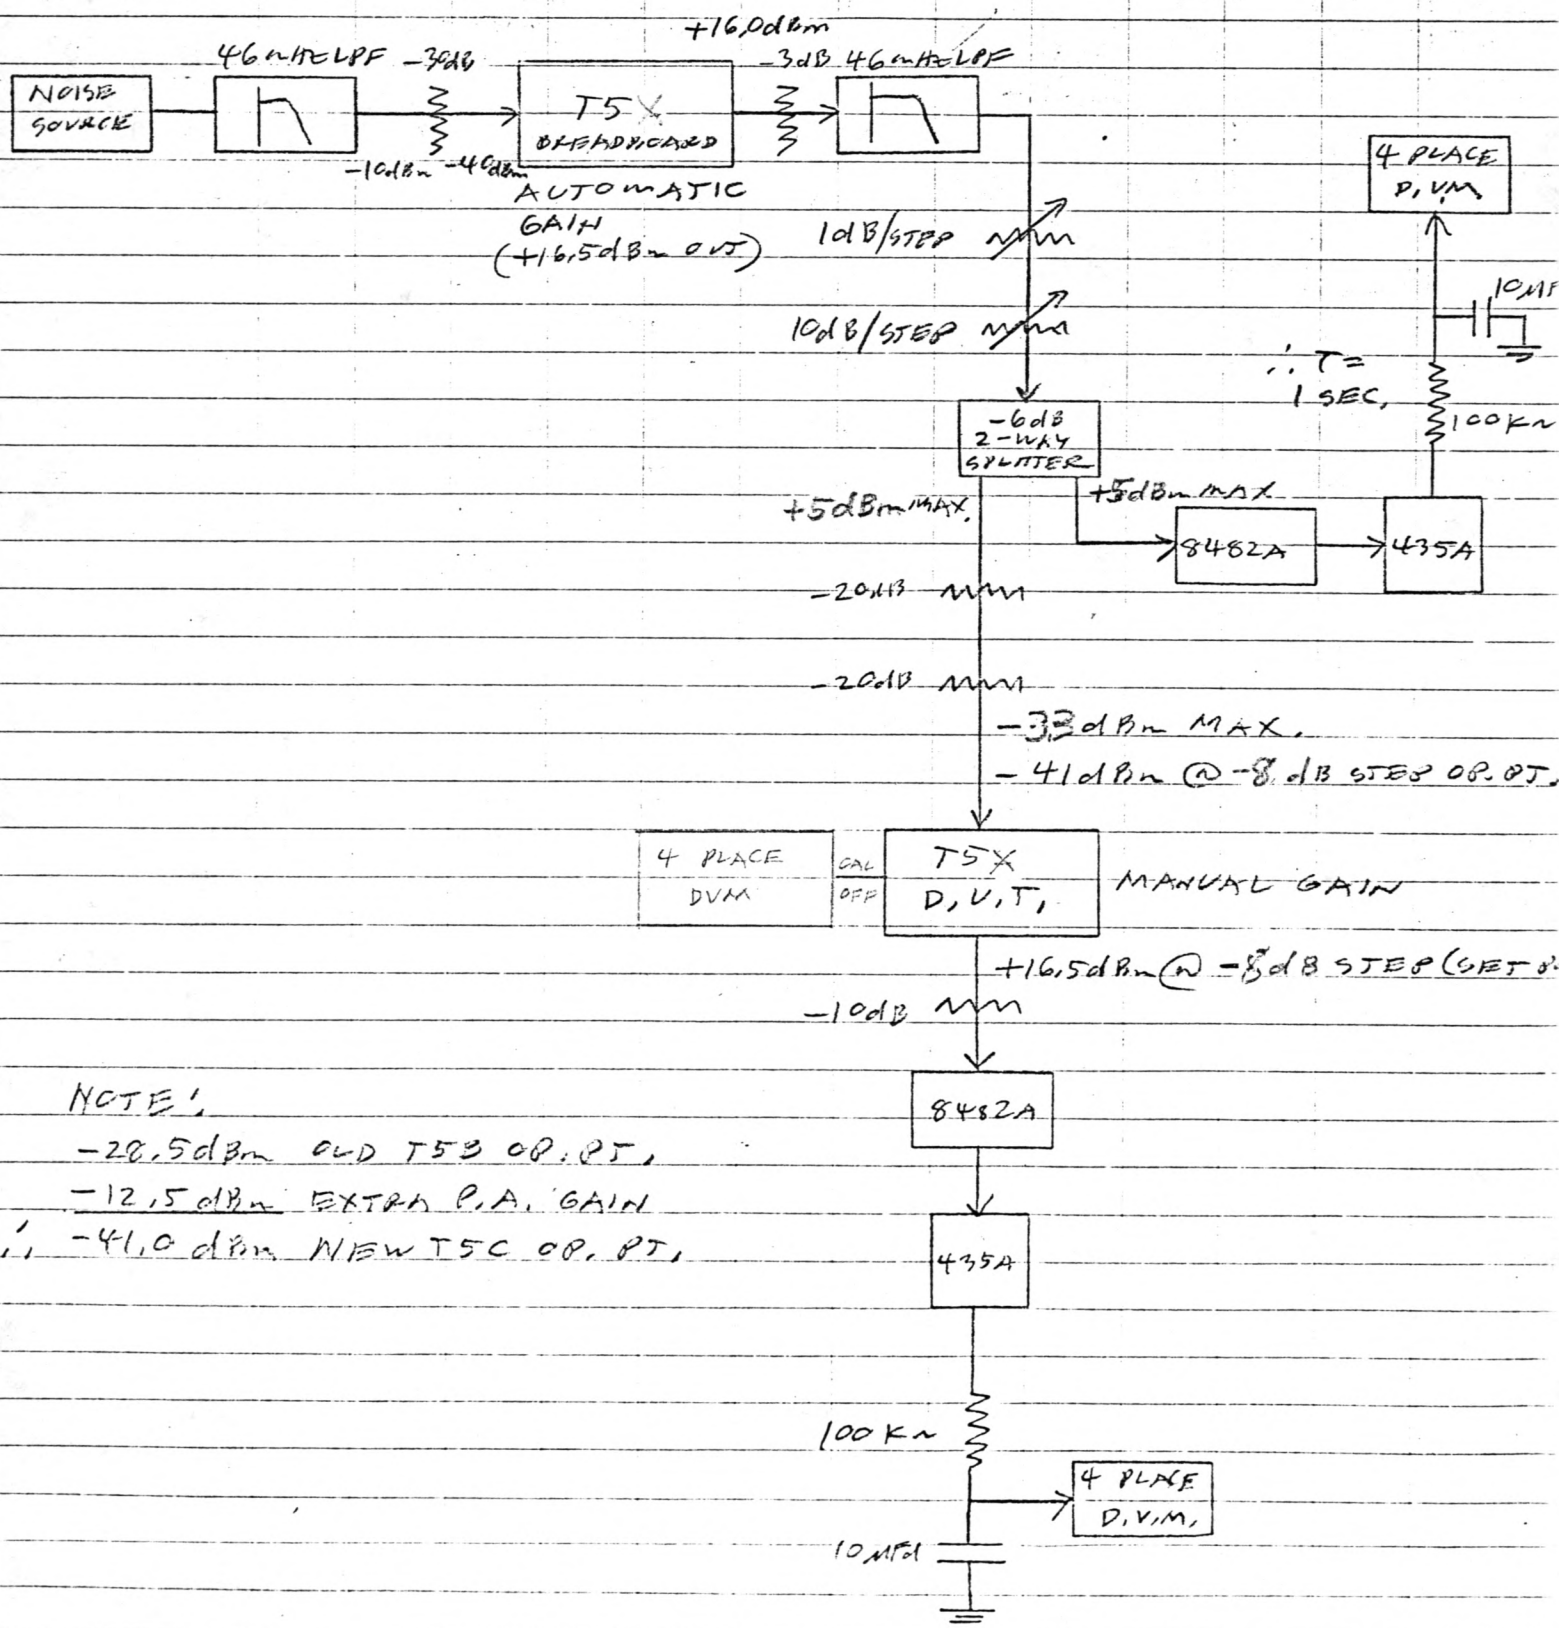 +16.0dBm
46mHz LPF
-30dB
-3dB
46mHz LPF
NOISE
SOURCE
T5X
BREADBOARD
-10dBm
-40dBm
AUTOMATIC
GAIN
(+16.5dBm OUT)
4 PLACE
D.V.M.
1dB/STEP
10dB/STEP
10MF
∴ T=
1 SEC.
100K~
-6dB
2-WAY
SPLITTER
+5dBm MAX.
+5dBm MAX
8482A
435A
-20dB
-20dB
-33dBm MAX.
-41dBm @ -8 dB STEP OP. PT.
4 PLACE
DVM
CAL
OFF
T5X
D.U.T.
MANUAL GAIN
+16.5dBm @ -8dB STEP (SET
-10dB
8482A
NOTE:
-28.5dBm OLD T5B OP. PT.
-12.5dBm EXTRA P.A. GAIN
∴ -41.0 dBm NEW T5C OP. PT.
435A
100K~
4 PLACE
D.V.M.
10MFd